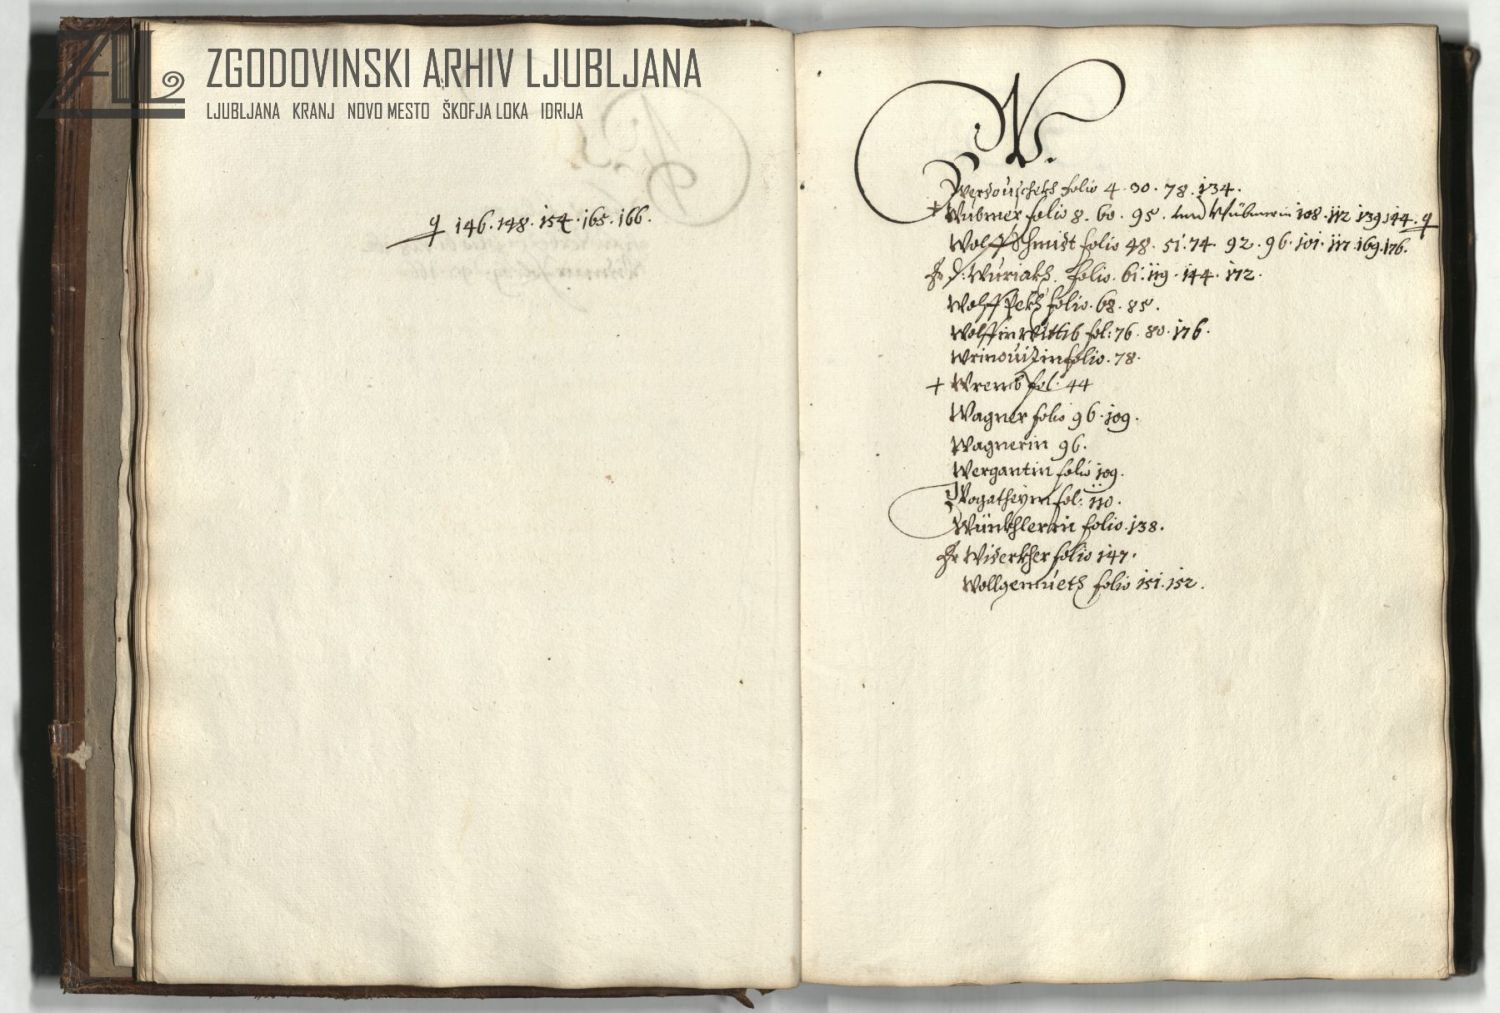 ZGODOVINSKI ARHIV LJUBLJANA
LJUBLJANA KRANJ NOVO MESTO ŠKOFJA LOKA IDRIJA
146. 148. 154. 165. 166.
W.
Werdouscheckh folio 4. 30. 78. 134.
+ Wubmer folio 8. 60. 95. und Wübmerin 108. 112 139. 144.
Wolff Schmidt folio 48. 51. 74. 92. 96. 101. 117. 169. 176.
Wuriakh. folio. 61. 119. 144. 172.
Wolff folio. 68. 85.
Wolffin Wittib fol: 76. 80. 176.
folio. 78.
+ fol. 44
Wagner folio 96. 109.
Wagnerin 96.
Wergantin folio 109.
fol: 110.
Wünkhlerin folio. 138.
Widerkher folio 147.
Wollgemueth folio 151. 152.